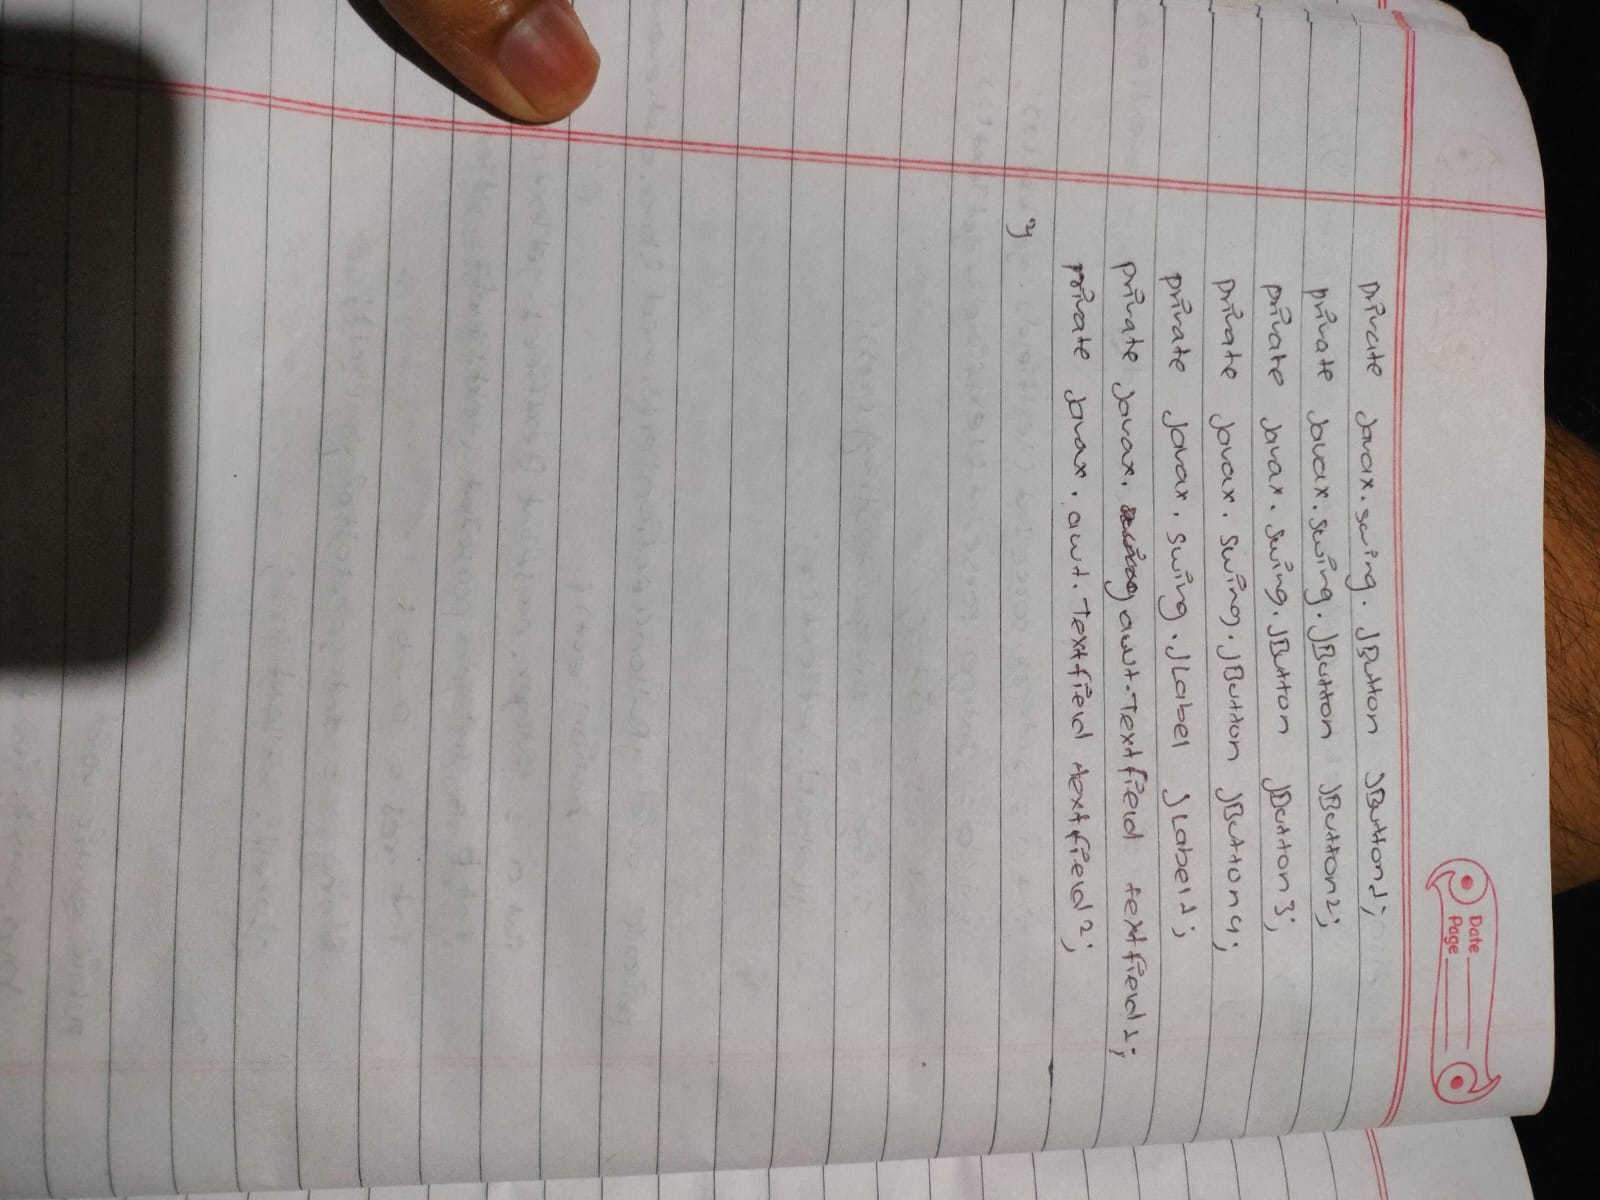 Date
Page
private javax.swing.JButton JButton1;
private javax.swing.JButton JButton2;
private javax.swing.JButton JButton3;
private javax.swing.JButton JButton4;
private javax.swing.JLabel JLabel1;
private javax.awt.Textfield textfield1;
private javax.awt.Textfield textfield2;
}